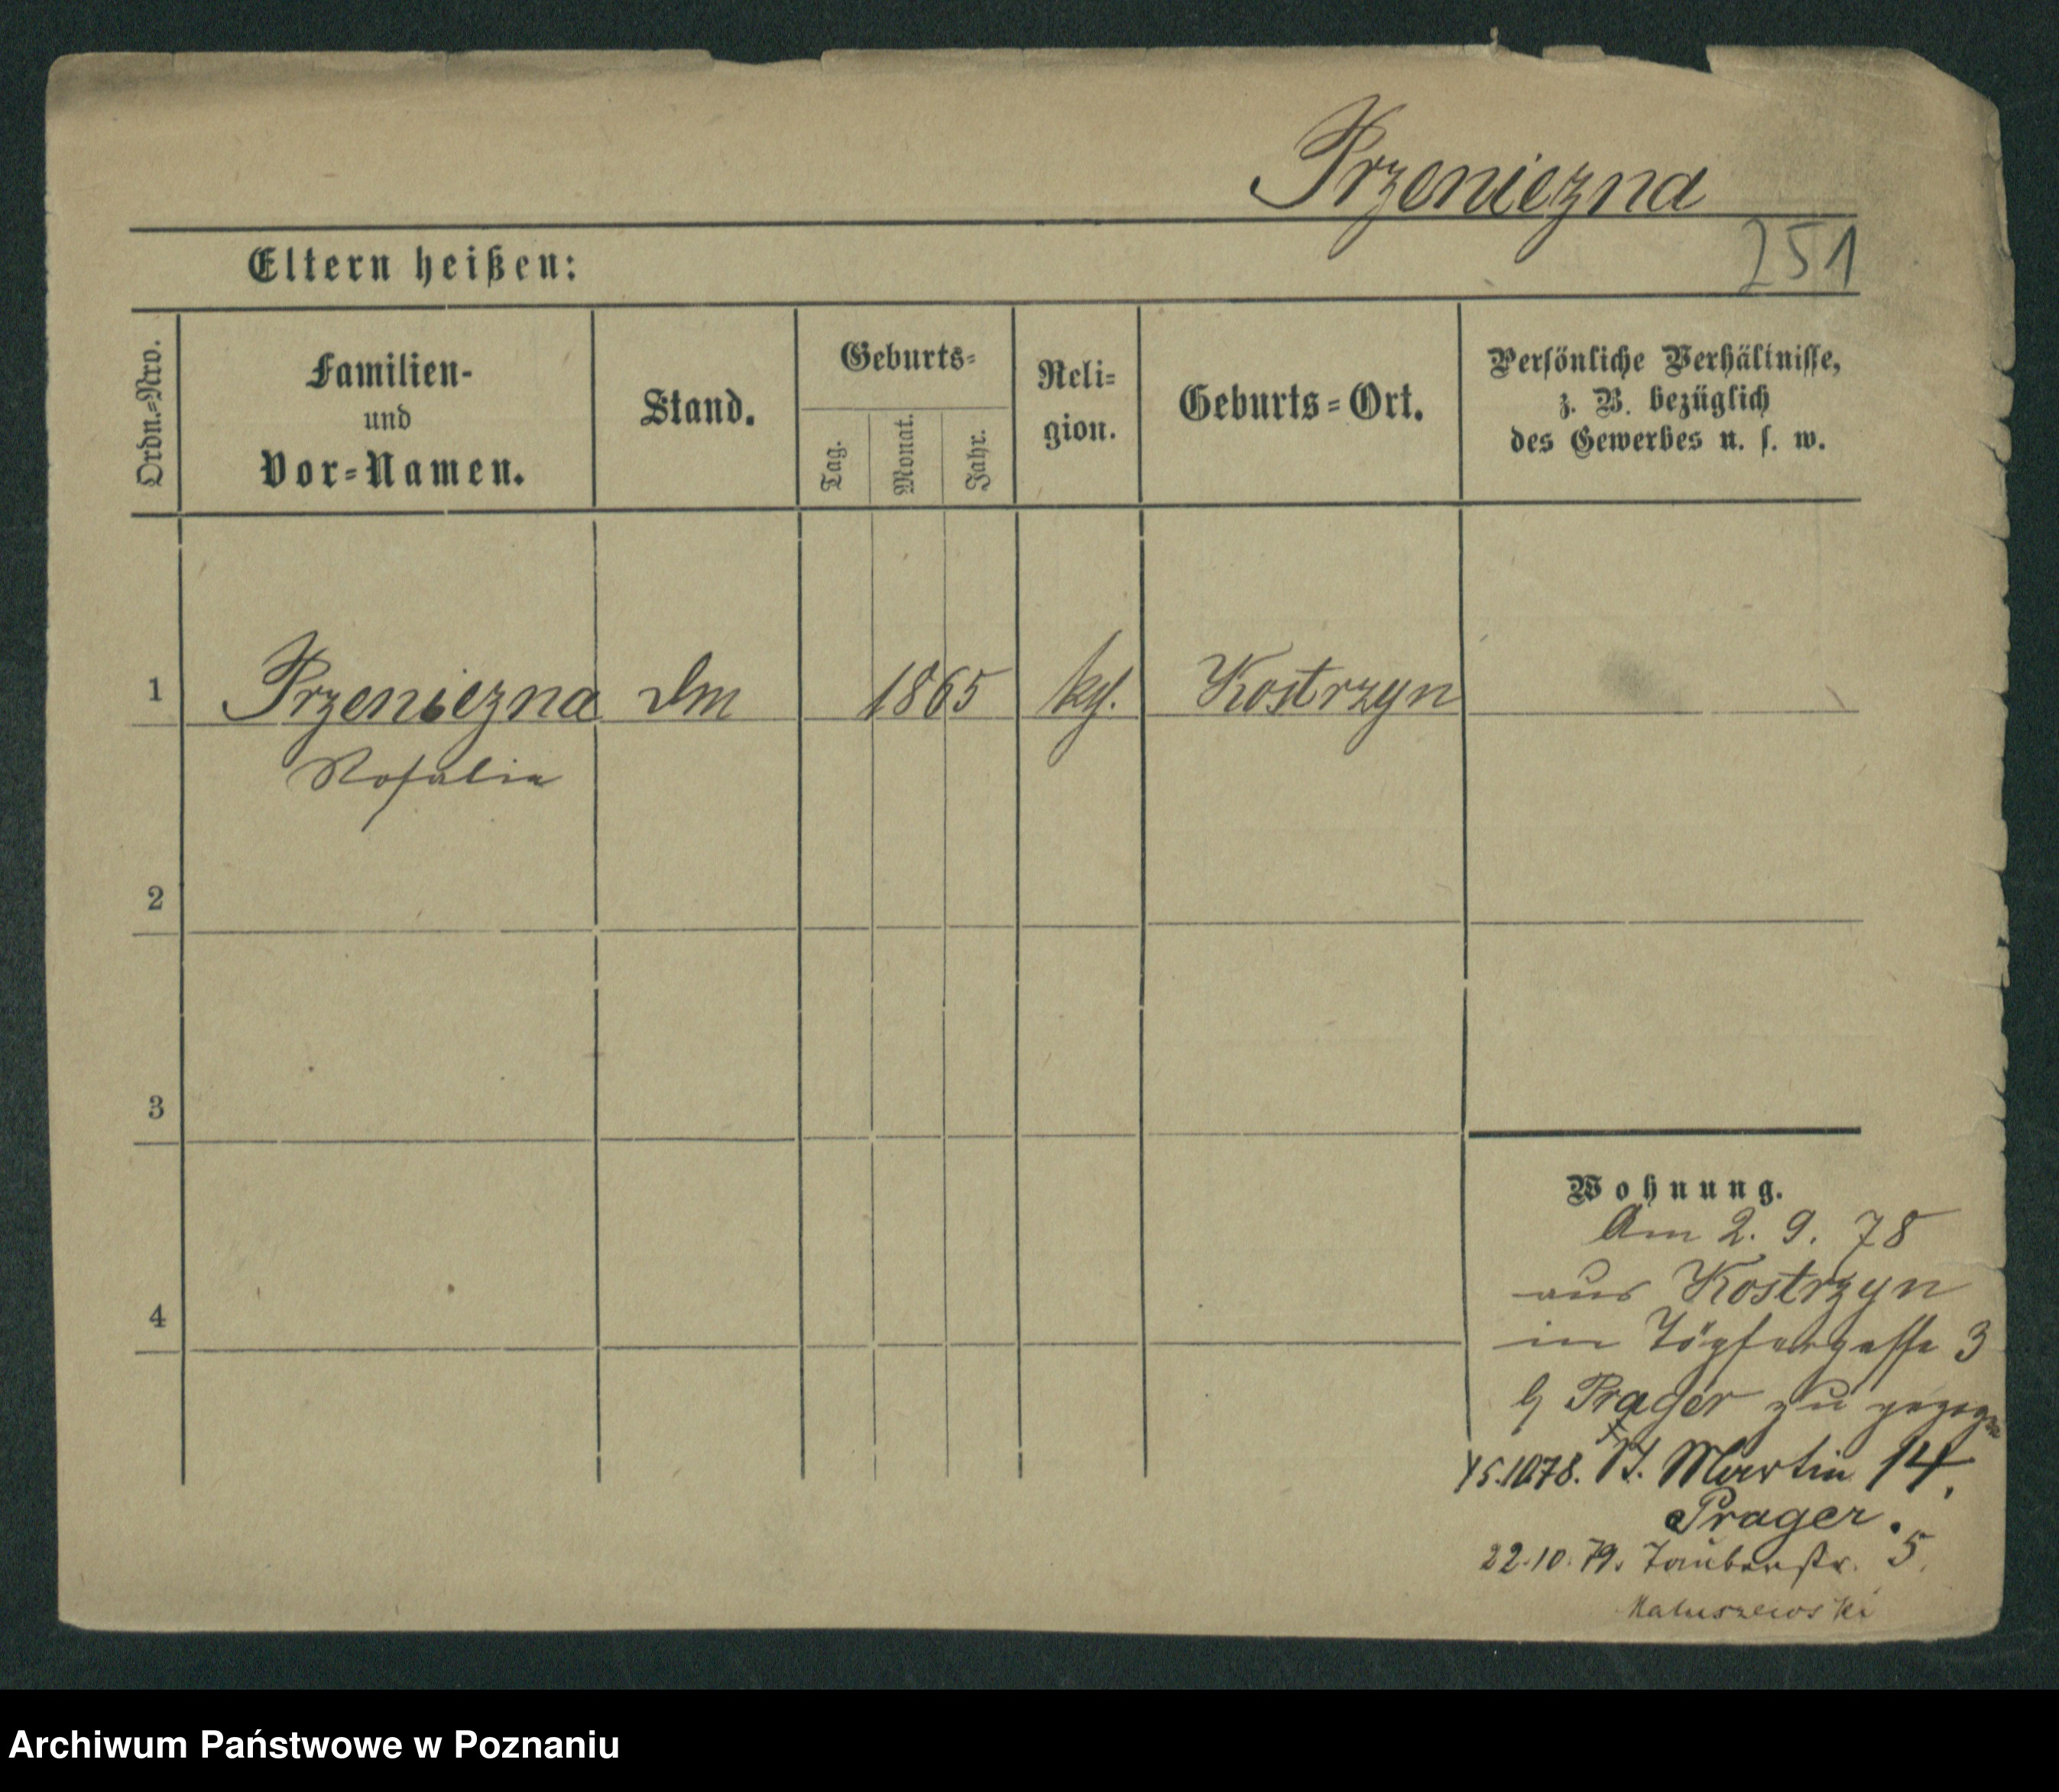 Przeniezna
251
Eltern heißen:
Ordn.-Nro.
Familien-
und
Vor-Namen.
Stand.
Geburts-
Tag.
Monat.
Jahr.
Reli-
gion.
Geburts-Ort.
Persönliche Verhältnisse,
z. B. bezüglich
des Gewerbes u. s. w.
1 Przeniezna Dm 1865 kg. Kostrzyn
Rosalia
2
3
4
Wohnung.
Am 2. 9. 78
aus Kostrzyn
in Töpfergasse 3
b/ Prager zu gezogen
15.10.78. St. Martin 14.
Prager.
22.10.79. Taubenstr. 5.
Matuszewski
Archiwum Państwowe w Poznaniu